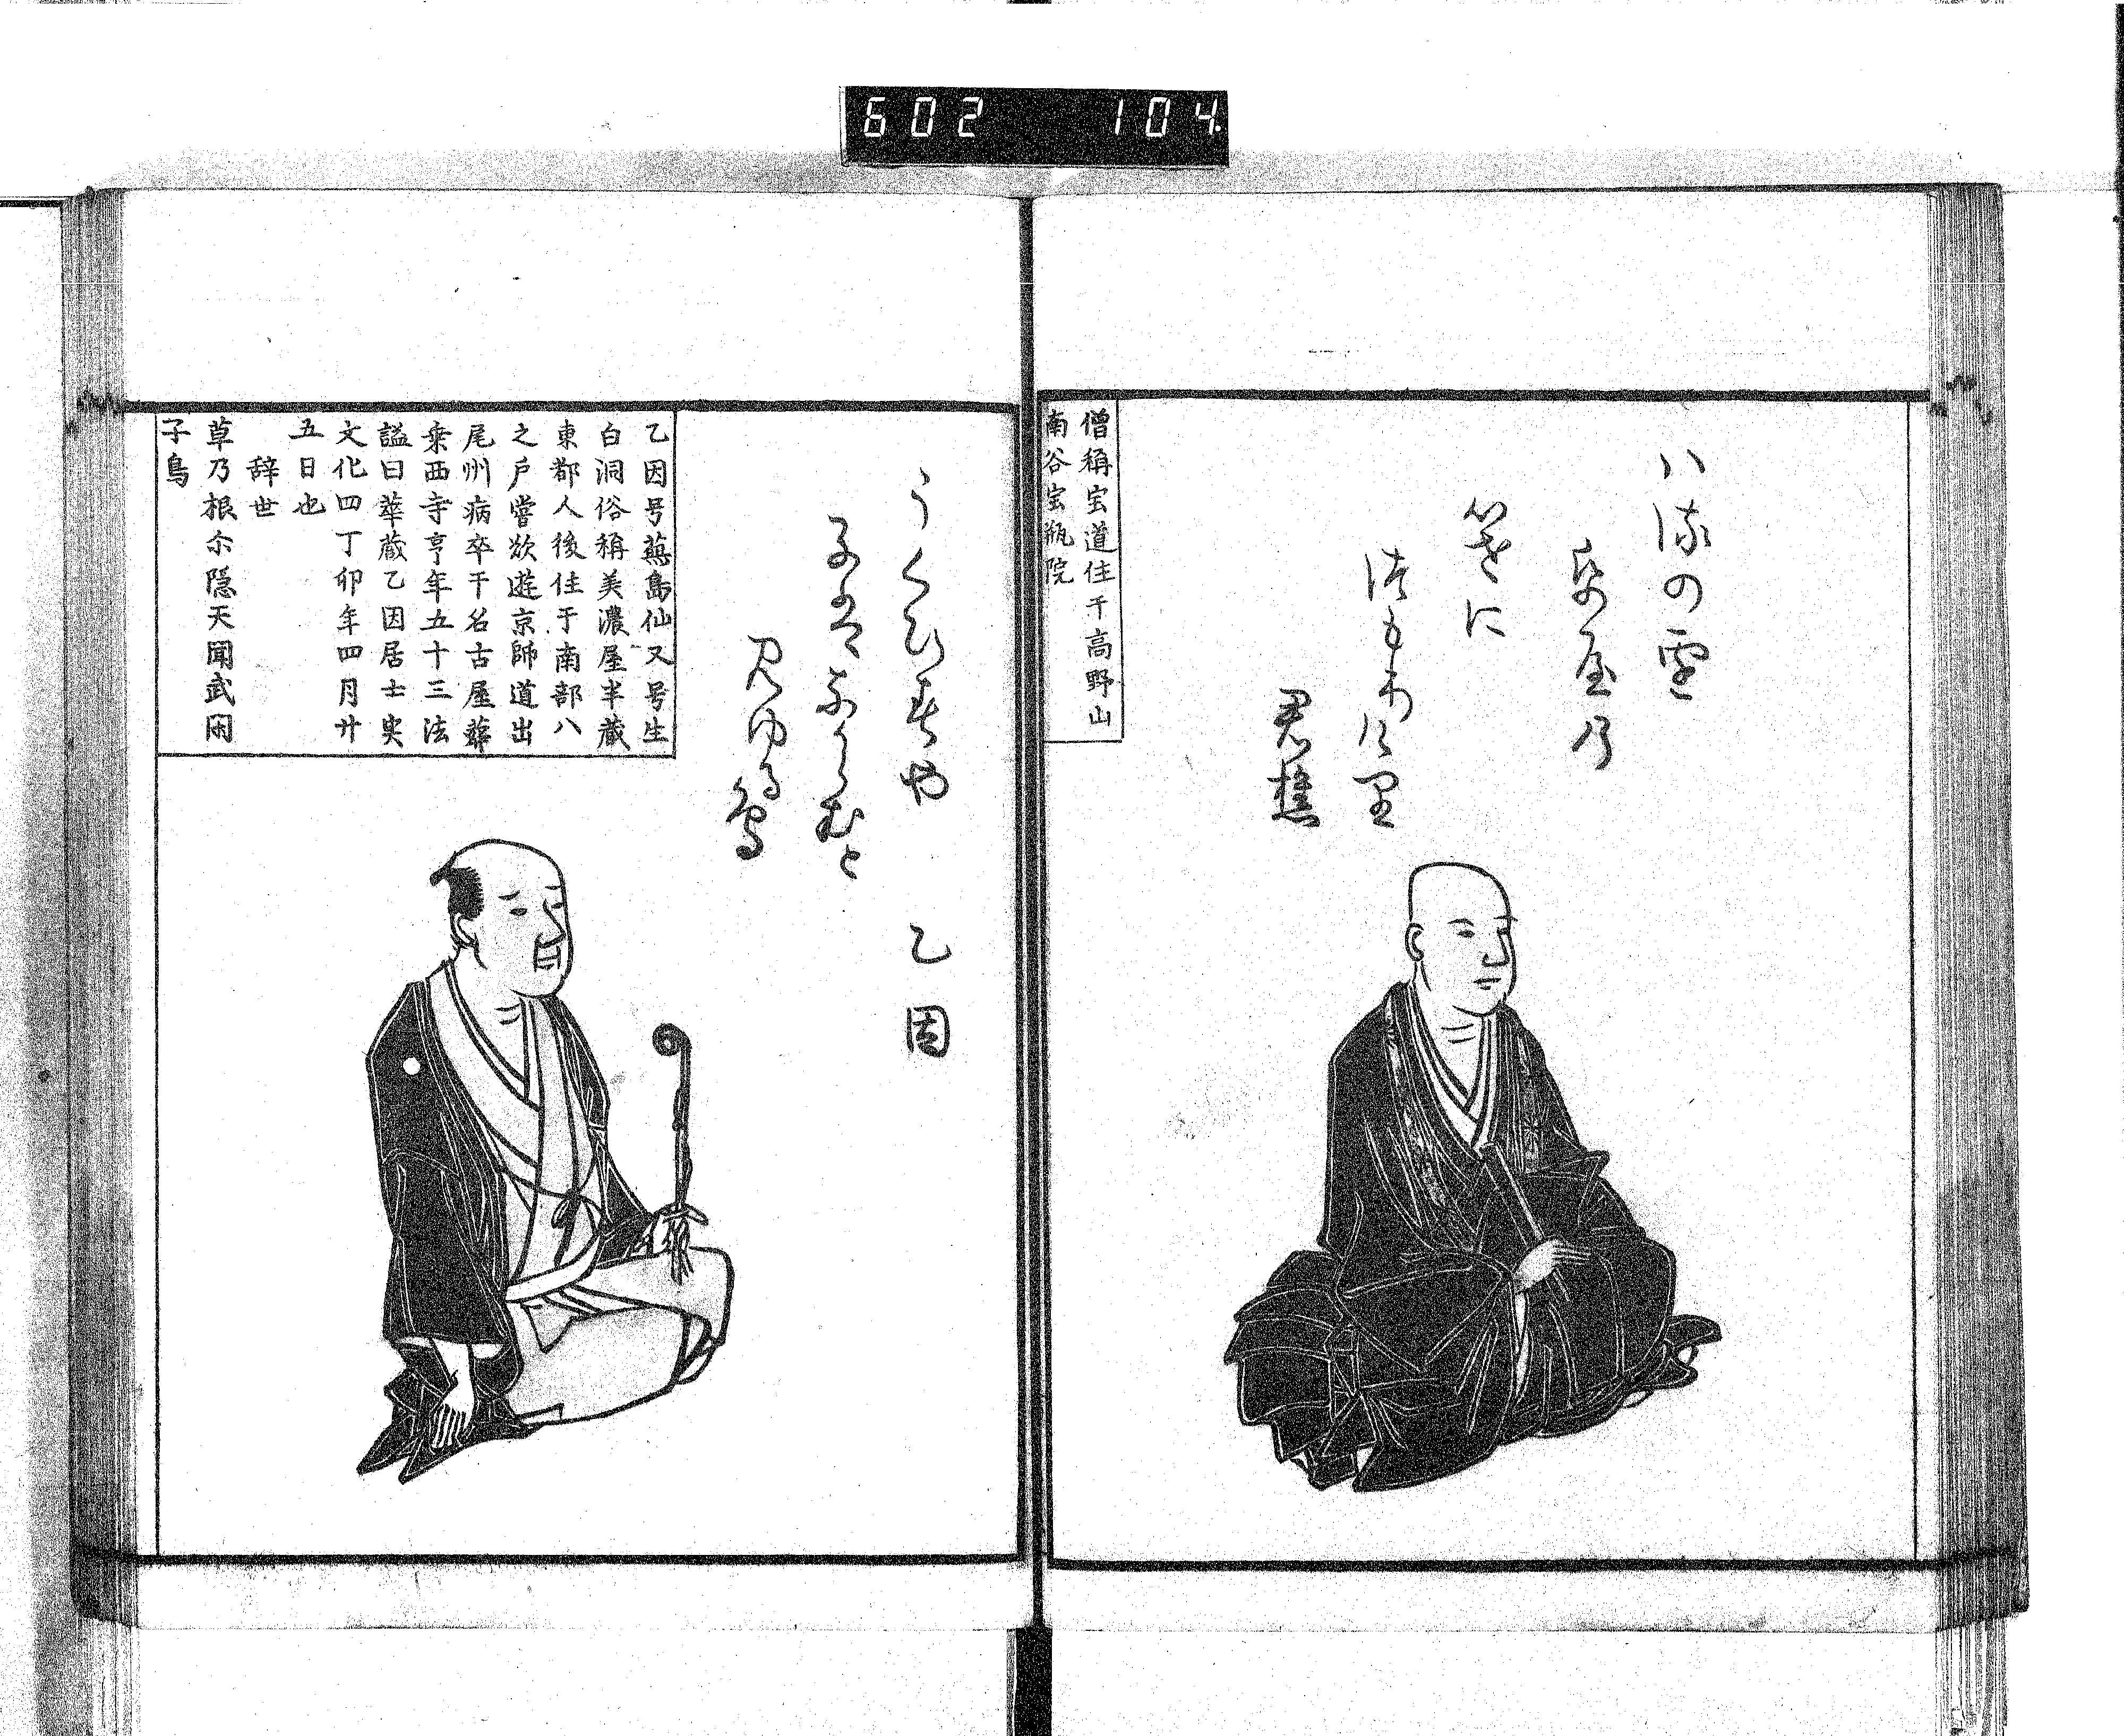 602 104
の雪
屋乃
笠に
つもりけ里
君樵
僧稱宝道住于高野山
南谷宝瓶院
うくひすや
見ゆる
乙因
乙因号蕪島仙又号生
白洞俗稱美濃屋半蔵
東都人後住于南部八
之戸嘗欲遊京師道出
尾州病卒于名古屋葬
乗西寺亨年五十三法
謚曰華蔵乙因居士実
文化四丁卯年四月廿
五日也
辞世
草乃根尓隠天聞武閑
子鳥